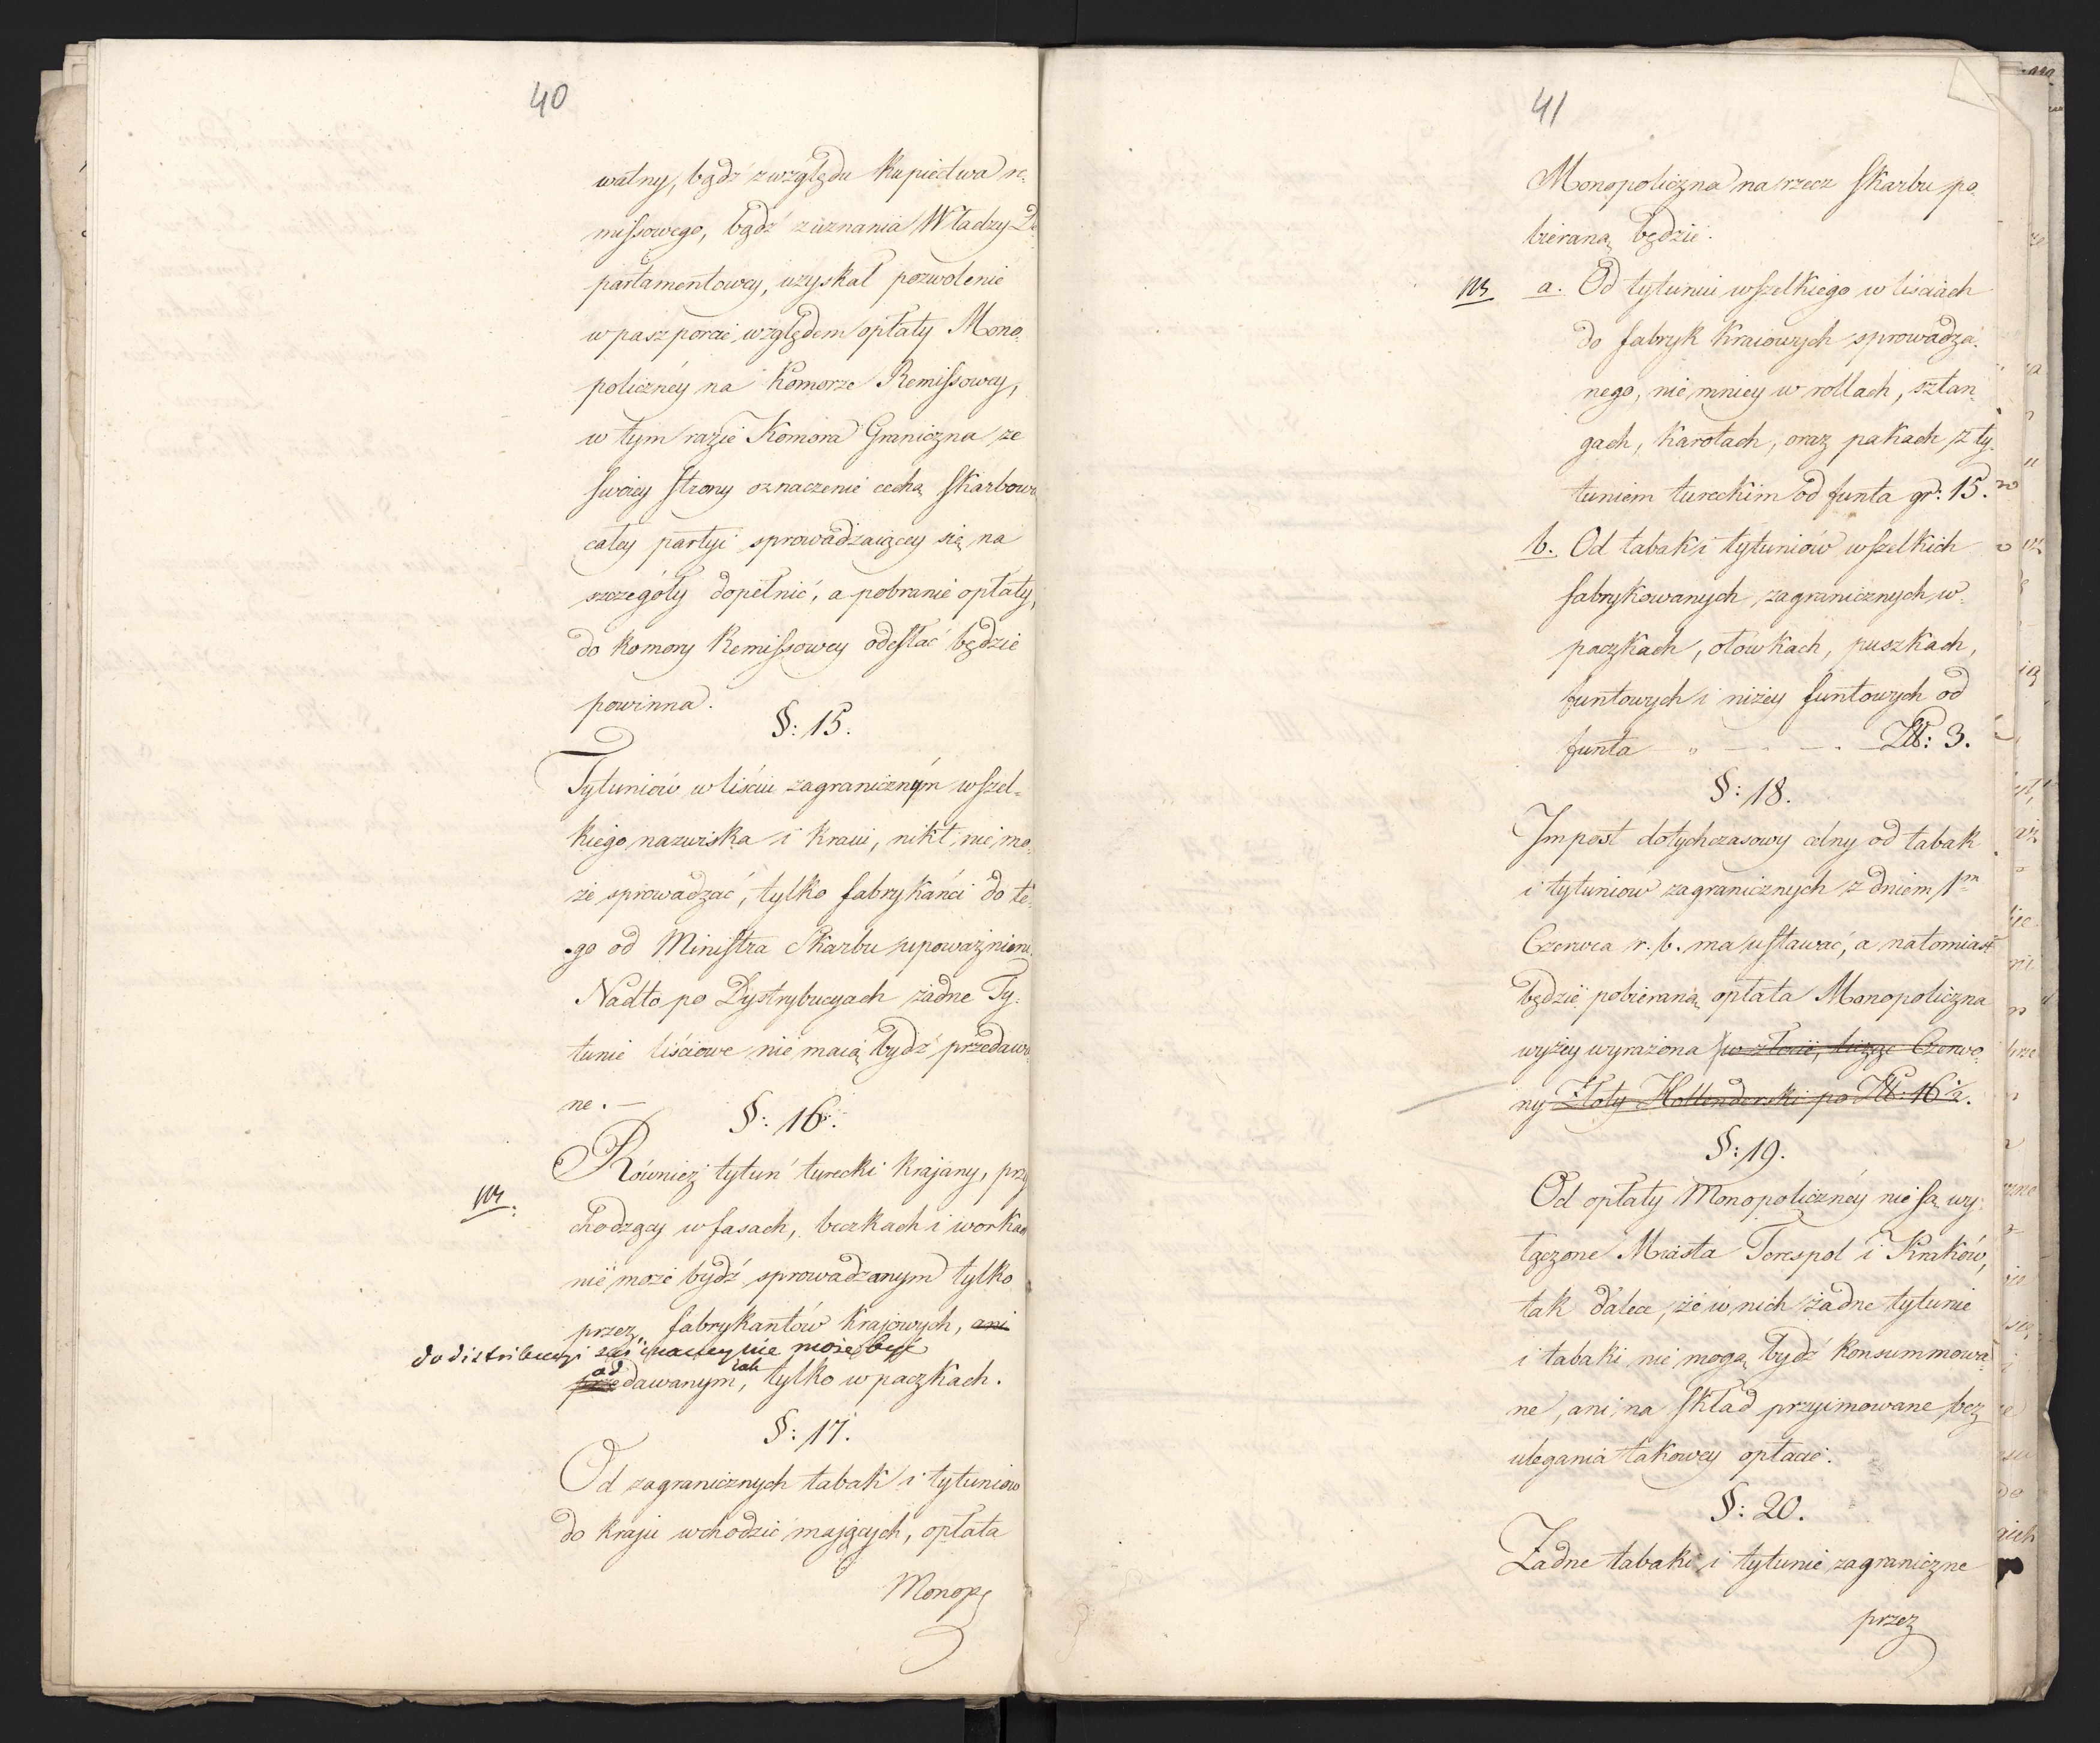 40
walny, bądź z względu Kupiectwa re=
missowego, bądź z uznania Władzy De
partamentowey, uzyskał pozwolenie
w paszporcie względem opłaty Mono=
policznéy na Komorze Remissowey,
w tym razie Komora Graniczna ze
swoiey strony oznaczenie cechą Skarbową
całey partyi sprowadzaiącey się na
szczegóły dopełnić, a pobranie opłaty,
do Komory Remissowey odesłać będzie
powinna.
§: 15.
Tytuniów w liściu zagranicznym wszel=
kiego nazwiska i Kraiu, nikt nie mo=
że sprowadzać, tylko fabrykańci do te=
go od Ministra Skarbu upoważnieni.
Nadto po Dystrybucyach żadne Ty=
tunie liściowe nie maią bydź przedawa
ne. —
§: 16.
Również tytuń turecki Krajany, przy
chodzący w fasach, beczkach i workach
nie może bydź sprowadzanym tylko
przez fabrykantów Krajowych, ani
do distribucyi zaś inaczey nie może być
od
przedawanym, iak tylko w paczkach.
§: 17.
Od zagranicznych tabak i tytuniów
do Kraju wchodzić mających, opłata
Monop
41
Monopoliczna na rzecz Skarbu po=
bieraną będzie.
a. Od tytuniu wszelkiego w liściach
do fabryk Kraiowych sprowadza=
nego, nie mniey w rollach, sztan=
gach, Karotach, oraz pakach z ty=
tuniem tureckim od funta gr: 15.
b. Od tabak i tytuniów wszelkich
fabrykowanych zagranicznych w
paczkach, ołówkach, puszkach,
funtowych i niżey funtowych od
funta — — — Złł: 3.
§: 18.
Impost dotychczasowy celny od tabak
i tytuniow zagranicznych z dniem 1m
Czerwca r. b. ma ustawać, a natomiast
będzie pobieraną opłata Monopoliczna
wyżey wyrażona w złocie, licząc Czerwo=
ny Złoty Hollenderski po Złł: 16½.
§: 19.
Od opłaty Monopolicznéy nie są wy=
łączone Miasta Terespol i Kraków,
tak dalece, że w nich żadne tytunie
i tabaki nie mogą bydź Konsummowa=
ne, ani na Skład przyimowane bez
ulegania takowey opłacie.
§: 20.
Żadne tabaki i tytunie zagraniczne
przez